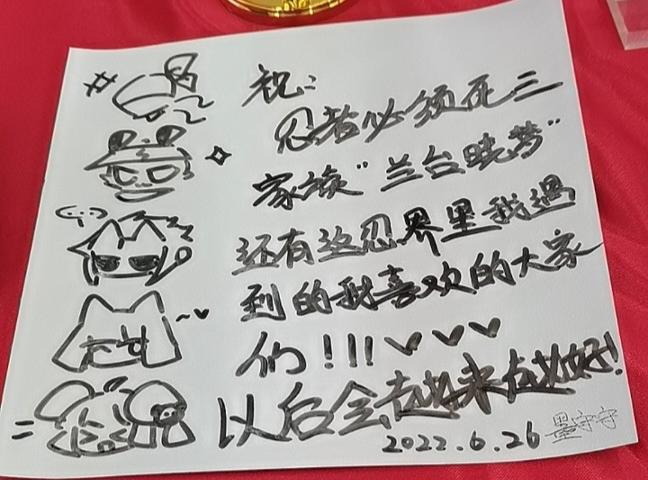 祝：
忍者必须死三
家族“兰台晓梦”
还有这忍界里我遇
到的我喜欢的大家
们！!!!
以后会越来越好！
2022.6.26
墨守守